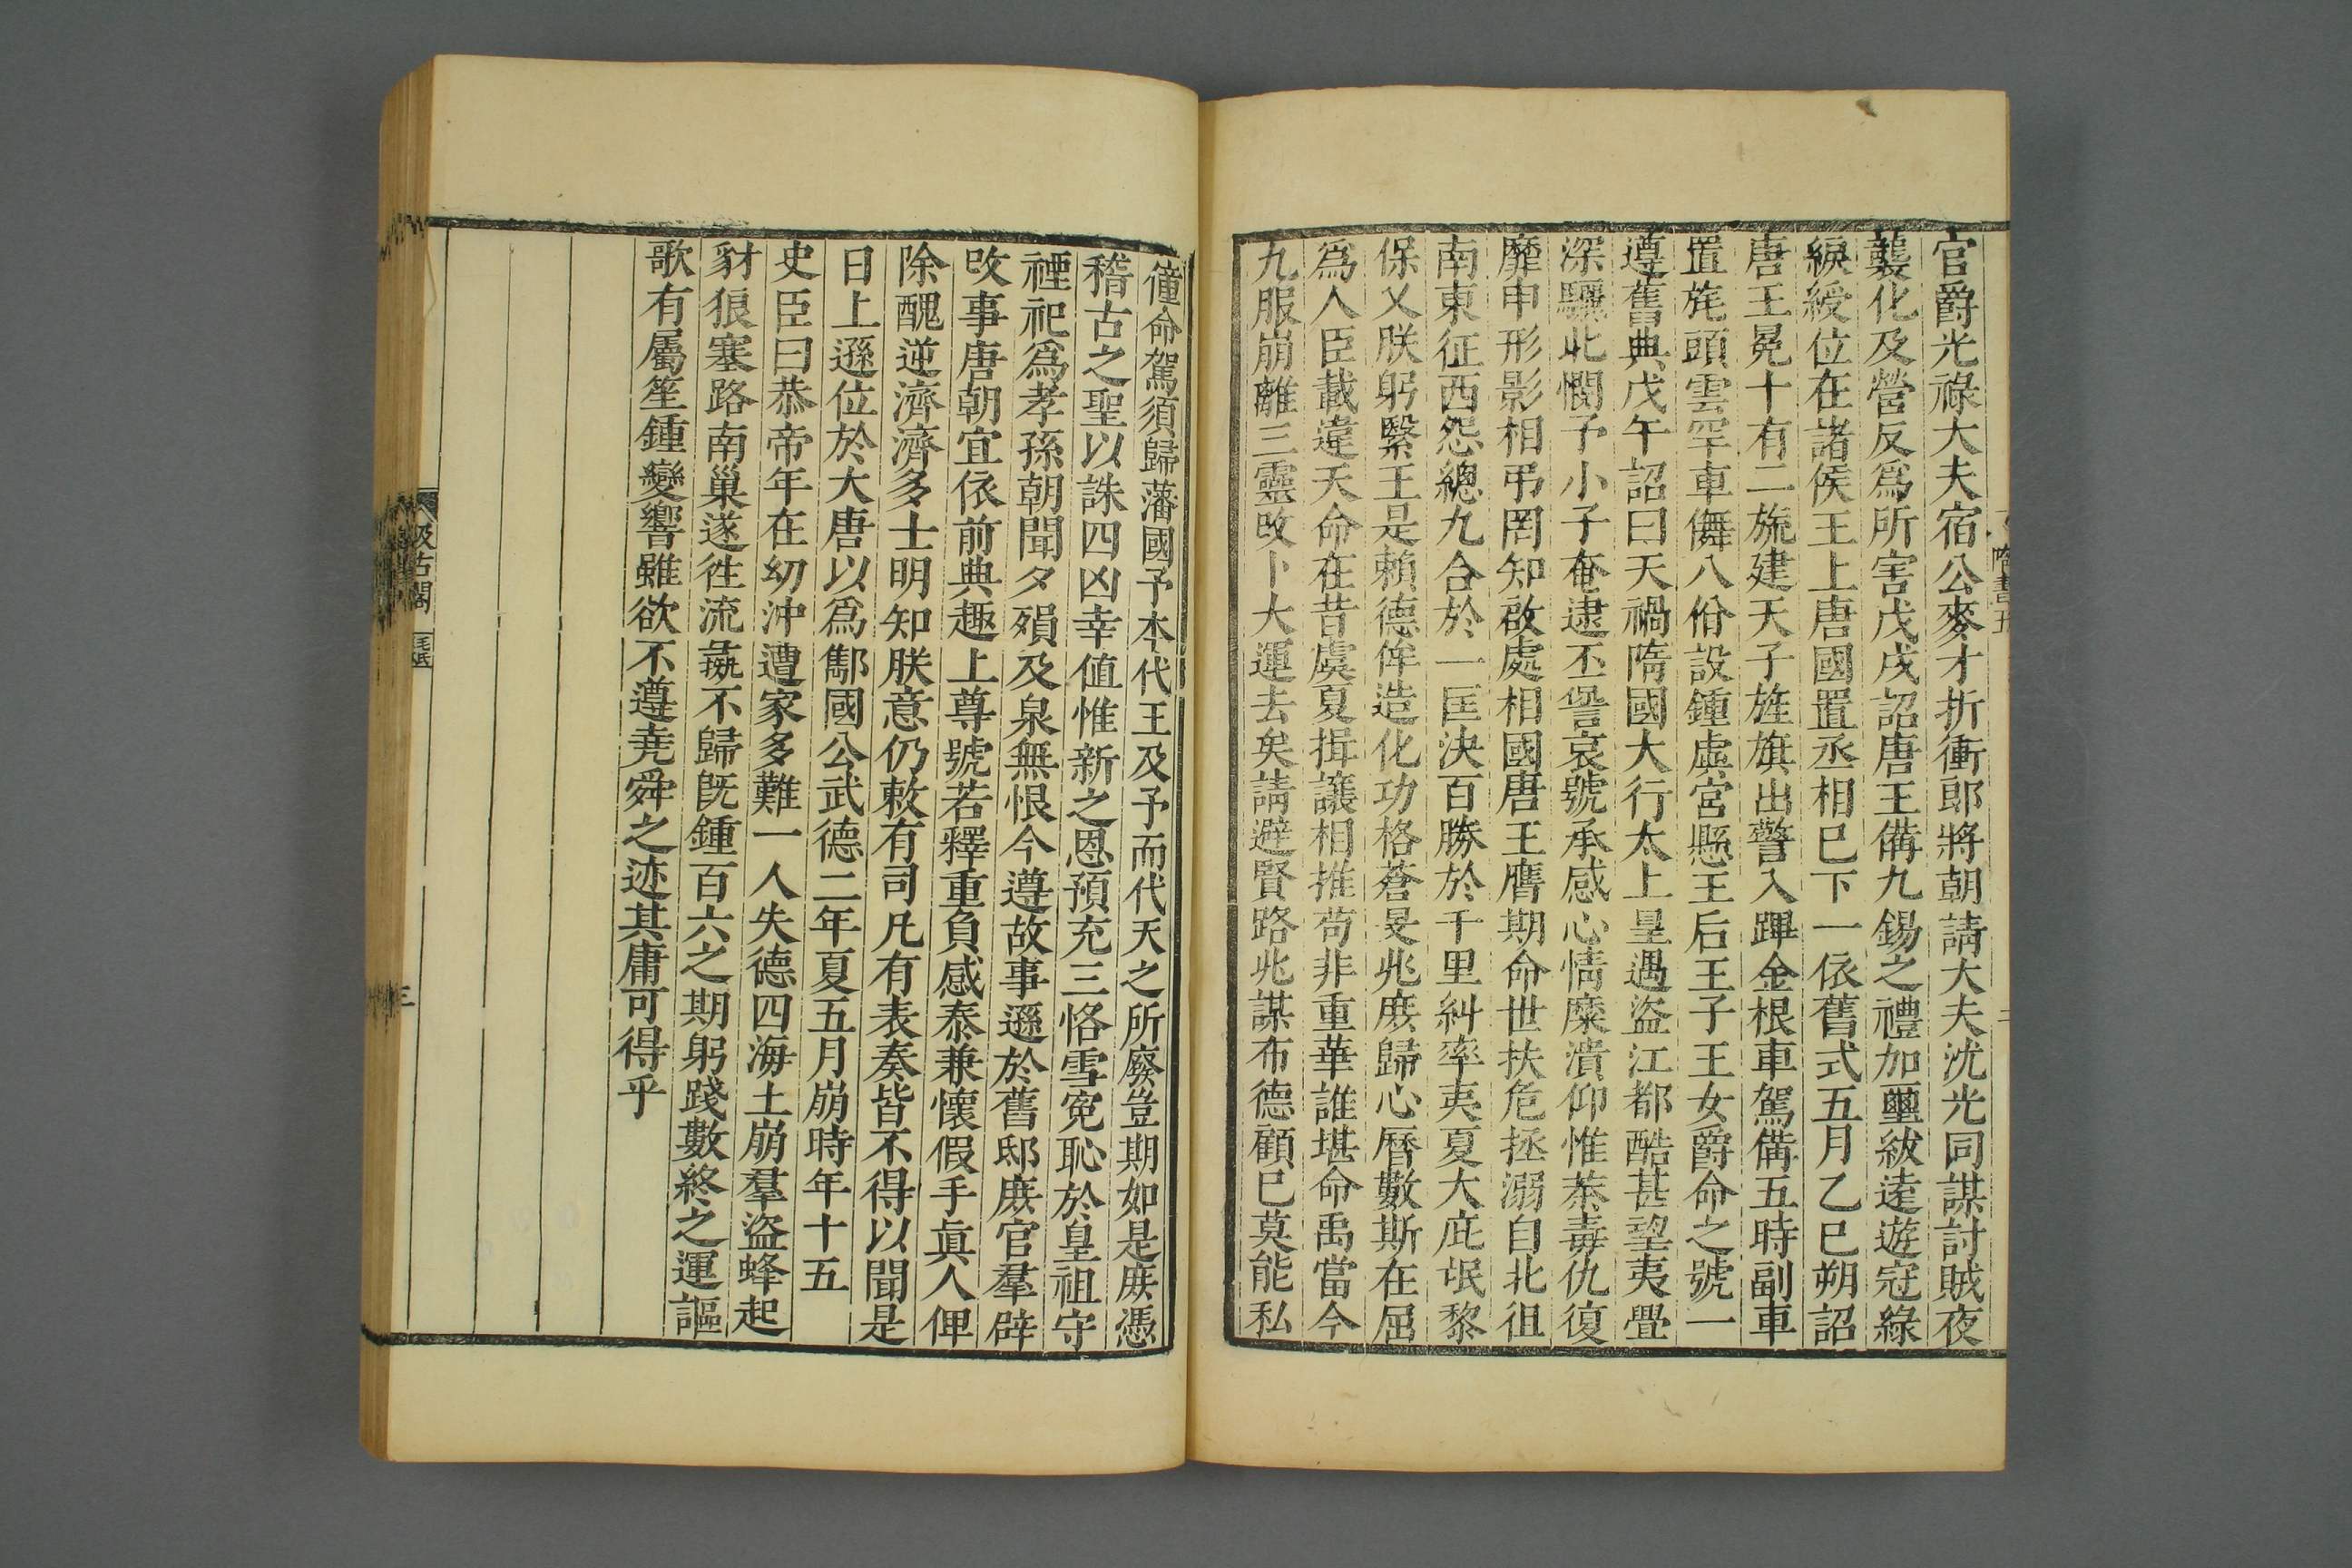 官爵光祿大夫宿公麥才折衝郎將朝請大夫沈光同謀討賊夜
襲化及營反爲所害戊戌詔唐王備九錫之禮加璽紱遠遊冠綠
綟綬位在諸侯王上唐國置丞相巳下一依舊式五月乙巳朔詔
唐王冕十有二旒建天子旌旗出警入蹕金根車駕備五時副車
置旄頭雲罕車儛八佾設鍾虡宮懸王后王子王女爵命之號一
遵舊典戊午詔曰天禍隋國大行太上皇遇盜江都酷甚望夷釁
深驪北憫予小子奄逮丕諐哀號承感心情糜潰仰惟荼毒仇復
靡申形影相弔罔知啟處相國唐王膺期命世扶危拯溺自北徂
南東征西怨總九合於一匡決百勝於千里糾率夷夏大庇氓黎
保乂朕躬繄王是賴德侔造化功格蒼旻兆庶歸心曆數斯在屈
爲人臣載違天命在昔虞夏揖讓相推苟非重華誰堪命禹當今
九服崩離三靈改卜大運去矣請避賢路兆謀布德顧巳莫能私
僮命駕須歸藩國予本代王及予而代天之所廢豈期如是庶憑
稽古之聖以誅四凶幸値惟新之恩預充三恪雪寃恥於皇祖守
禋祀爲孝孫朝聞夕殞及泉無恨今遵故事遜於舊邸庶官羣辟
改事唐朝宜依前典趣上尊號若釋重負感泰兼懷假手眞人俾
除醜逆濟濟多士明知朕意仍敕有司凡有表奏皆不得以聞是
日上遜位於大唐以爲酅國公武德二年夏五月崩時年十五
史臣曰恭帝年在幼沖遭家多難一人失德四海土崩羣盜蜂起
豺狼塞路南巢遂徃流彘不歸旣鍾百六之期躬踐數終之運謳
歌有屬笙鍾變響雖欲不遵堯舜之迹其庸可得乎
汲古閣
毛氏
三